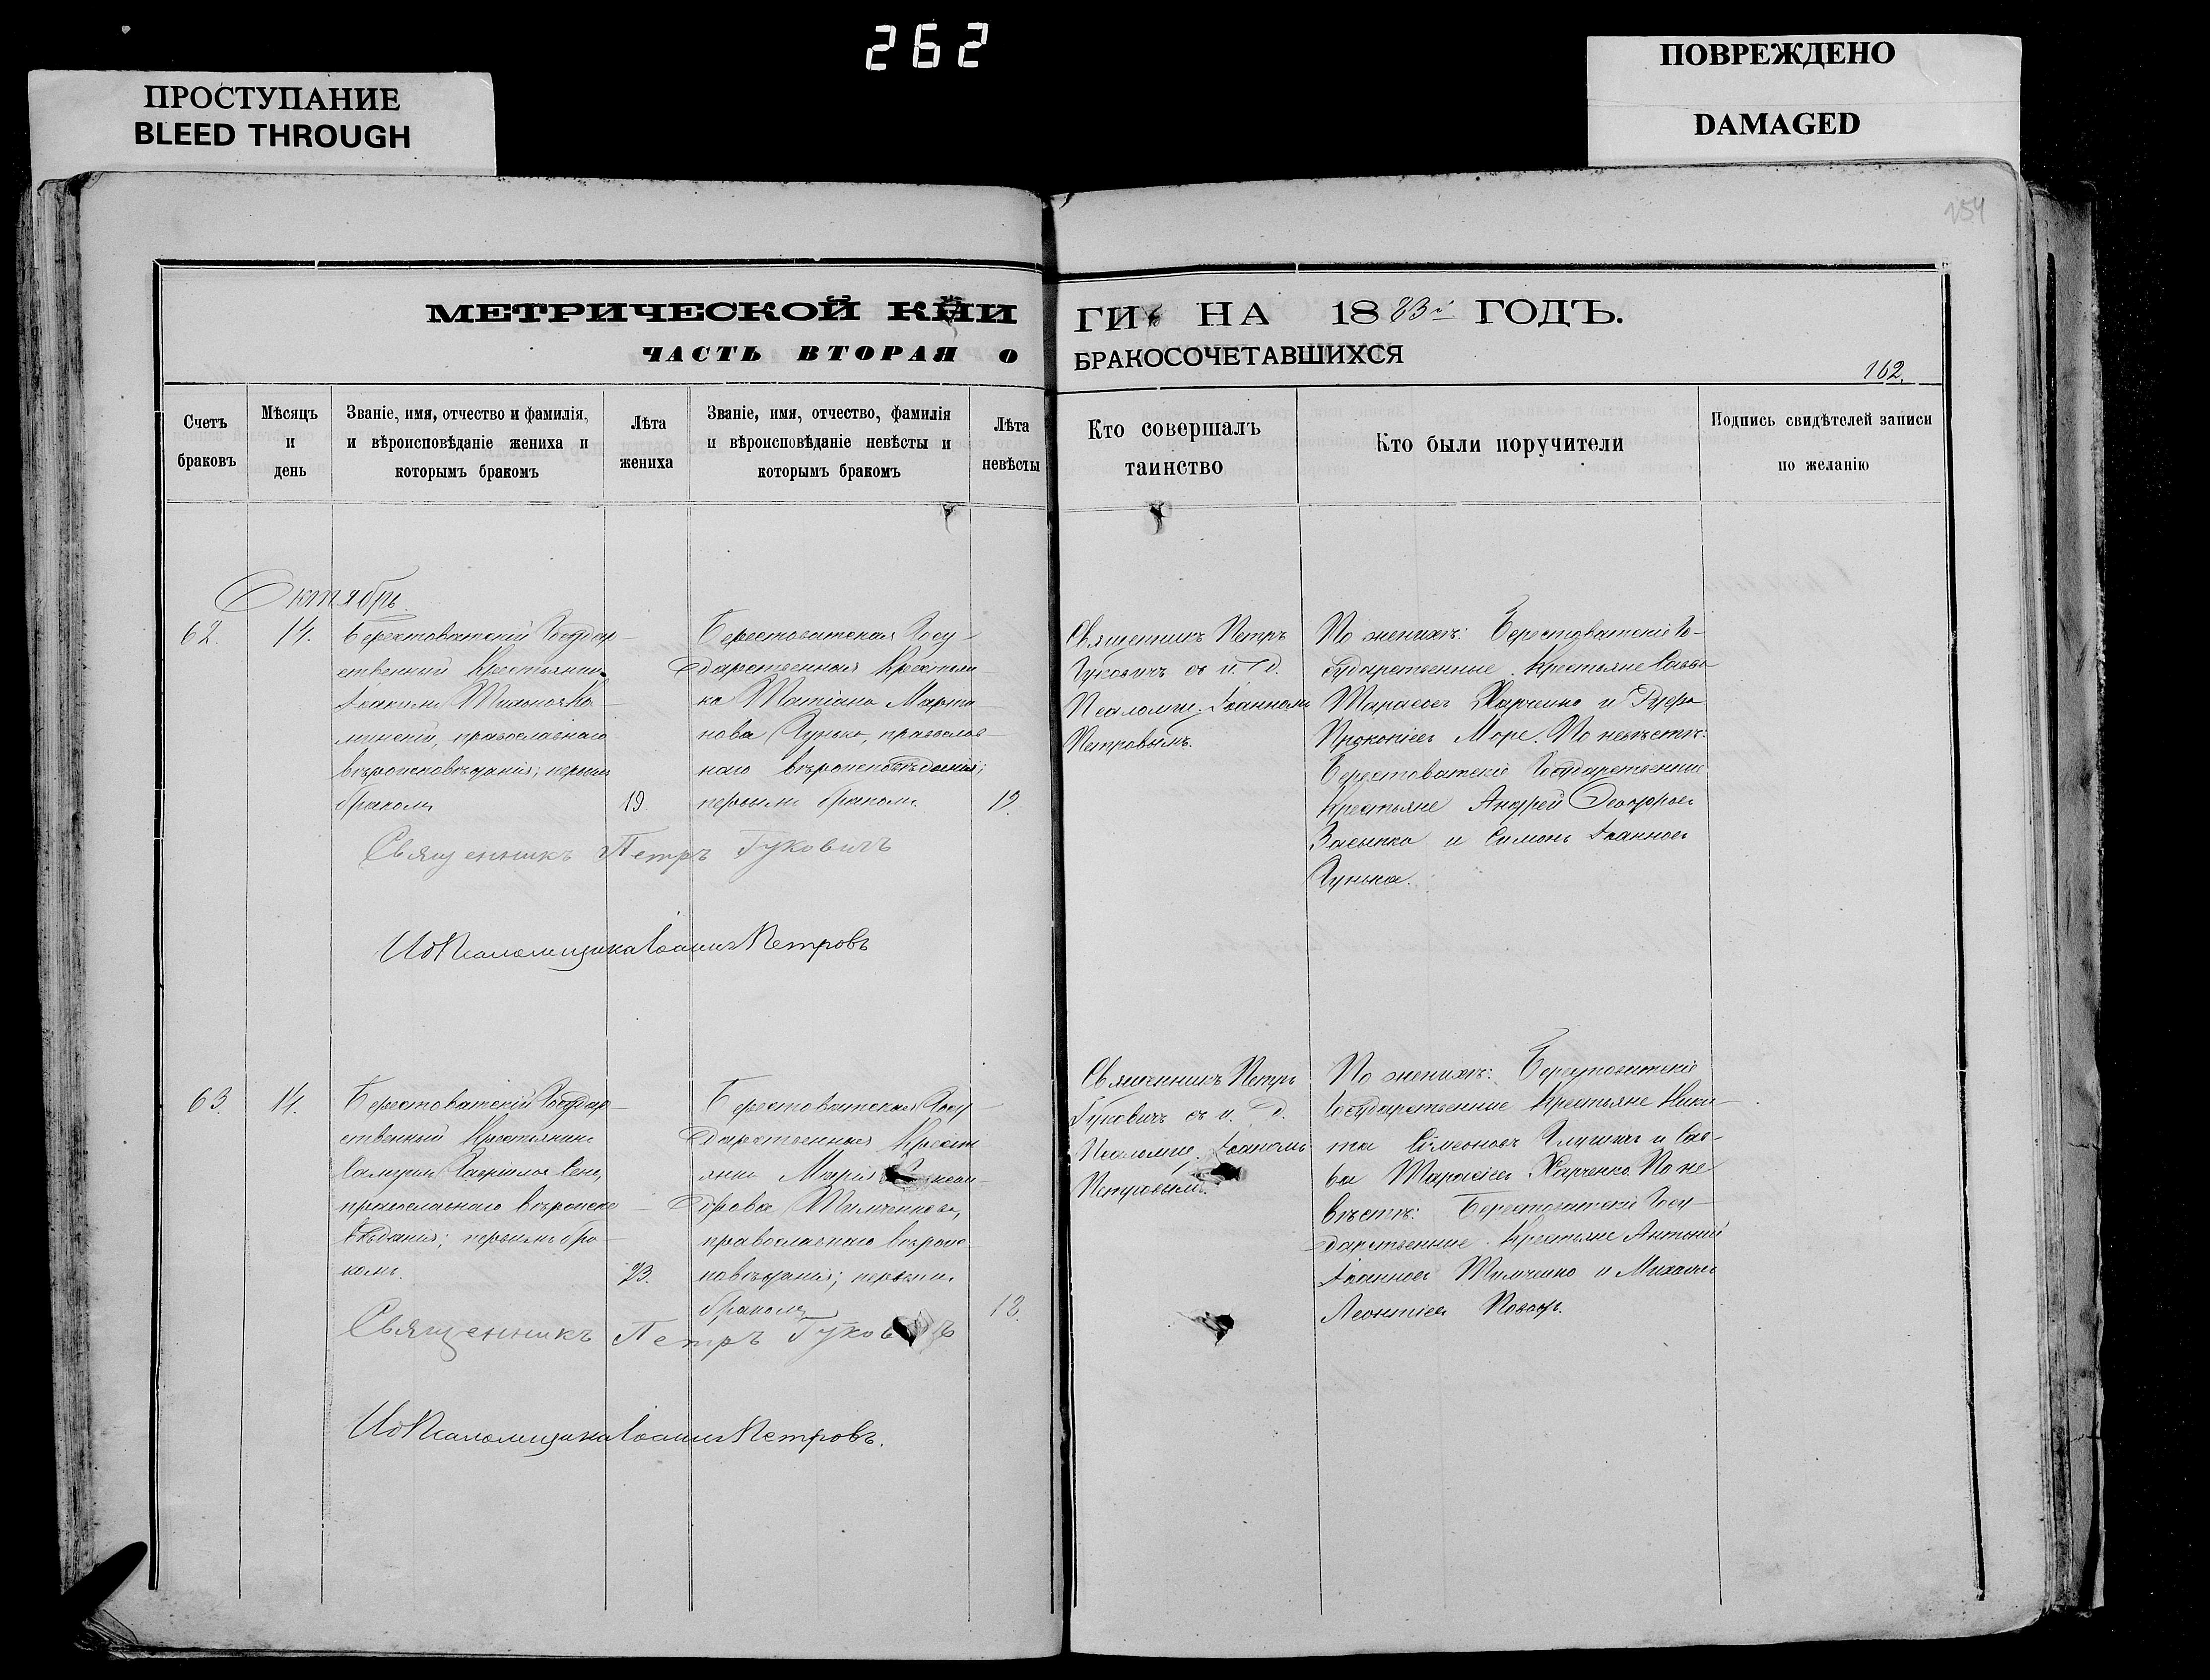 262
ПРОСТУПАНИЕ
BLEED THROUGH
ПОВРЕЖДЕНО
DAMAGED
154
МЕТРИЧЕСКОЙ КНИ
ГИ НА 1883й ГОДЪ.
ЧАСТЬ ВТОРАЯ О
БРАКОСОЧЕТАВШИХСЯ
162.
Счетъ
браковъ
Мѣсяцъ
и
день
Званіе, имя, отчество и фамилія,
и вѣроисповѣданіе жениха и
которымъ бракомъ
Лѣта
жениха
Званіе, имя, отчество, фамилія
и вѣроисповѣданіе невѣсты и
которымъ бракомъ
Лѣта
невѣсты
Кто совершалъ
таинство
Кто были поручители
Подпись свидѣтелей записи
по желанію
Октябрь.
62.
14.
Берестоватскій Государ-
ственный Крестьянинъ
Іоакимъ
православнаго
вѣроисповѣданія; первымъ
бракомъ
19.
Берестоватская Госу-
дарственная Крестьян-
ка Татіана Марти-
нова Лунька, православ-
наго вѣроисповѣданія;
первымъ бракомъ.
19.
Священникъ Петръ
Гуковичъ съ и. д.
Псаломщ. Іоанномъ
Петровымъ.
По женихѣ: Берестоватскіе Го-
сударственные Крестьяне Савва
Тарасовъ Харченко и
Прокопіевъ Море. По невѣстѣ:
Берестоватскіе Государственные
Крестьяне Андрей
Засыпка и Симонъ Іоанновъ
Лунька.
Священникъ Петръ Гуковичъ
ИдПсаломщика Іоаннъ Петровъ
63.
14.
Берестоватскій Государ-
ственный Крестьянинъ
Гавріиловъ
православнаго вѣроиспо-
вѣданія; первымъ бра-
комъ.
23.
Берестоватская Госу-
дарственная Крест-
янка Марія
Тимченкова,
православнаго вѣроис-
повѣданія; первымъ
бракомъ
18.
Священникъ Петръ
Гуковичъ съ и. д.
Псаломщ. Іоанномъ
Петровымъ.
По женихѣ: Берестоватскіе
Государственные Крестьяне Ники-
та Сѵмеоновъ и Сав-
ва Тарасіевъ Харченко. По не-
вѣстѣ: Берестоватскіе Госу-
дарственные Крестьяне Антоній
Іоанновъ Тимченко и Михаилъ
Леонтіевъ
Священникъ Петръ Гуковичъ
ИдПсаломщика Іоаннъ Петровъ.